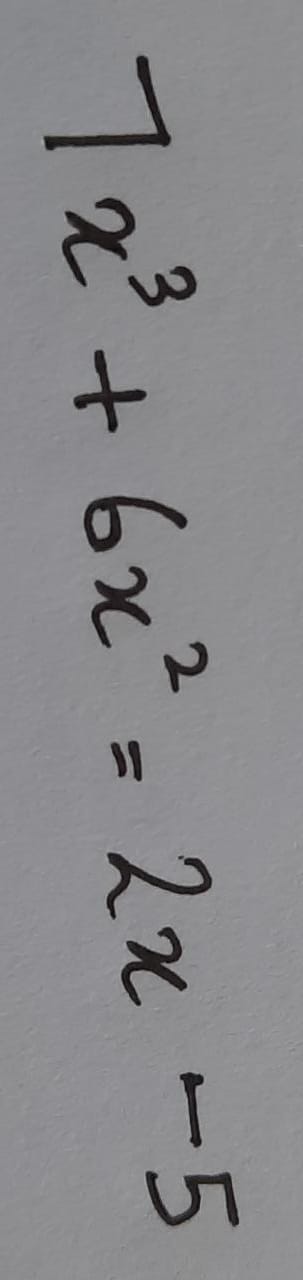 7x³ + 6x² = 2x - 5